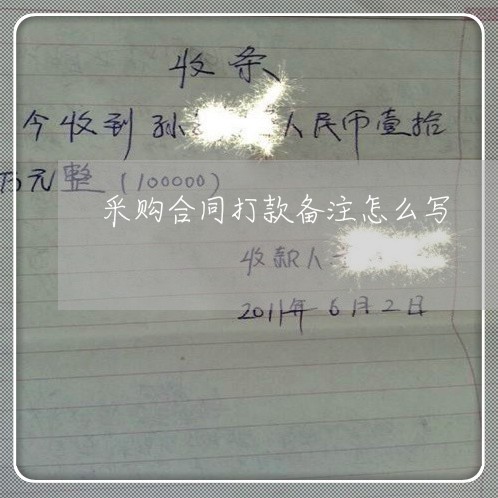 收条
今收到孙 人民币壹拾
万元整（100000）
采购合同打款备注怎么写
收款人
2011年6月2日